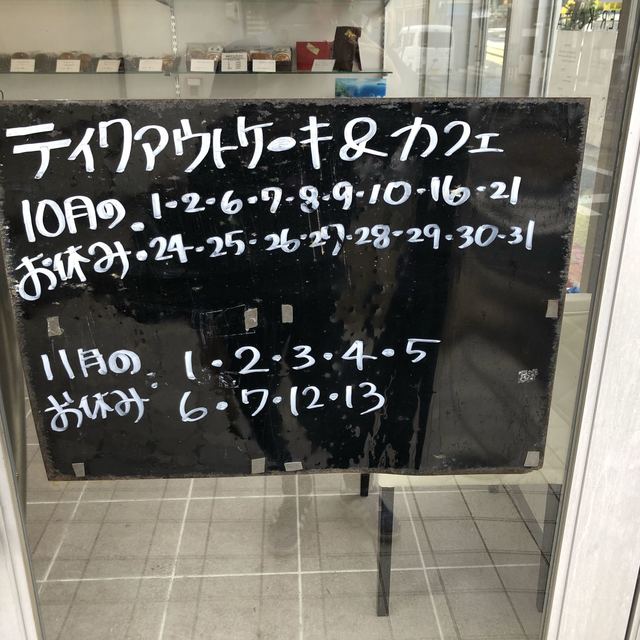 テイクアウトケーキ&カフェ
10月の 1・2・6・7・8・9・10・16・21
お休み・24・25・26・27・28・29・30・31
11月の 1・2・3・4・5
お休み 6・7・12・13